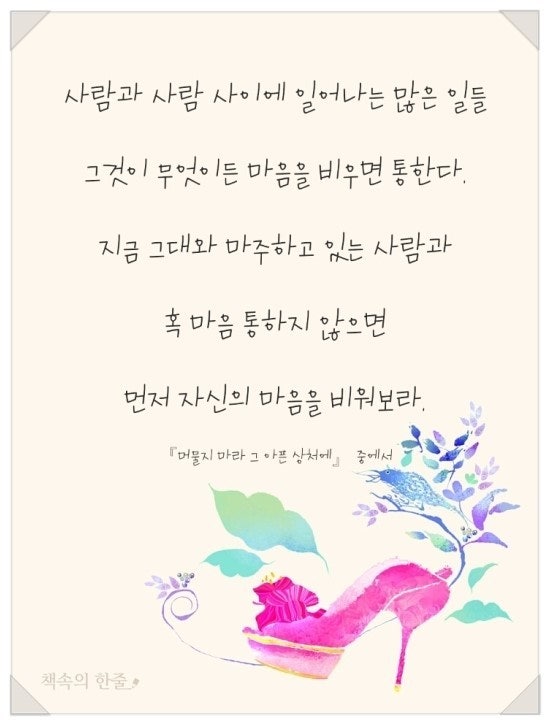 사람과 사람 사이에 일어나는 많은 일들
그것이 무엇이든 마음을 비우면 통한다.
지금 그대와 마주하고 있는 사람과
혹 마음 통하지 않으면
먼저 자신의 마음을 비워보라.
『머물지 마라 그 아픈 상처에』 중에서
책속의 한줄